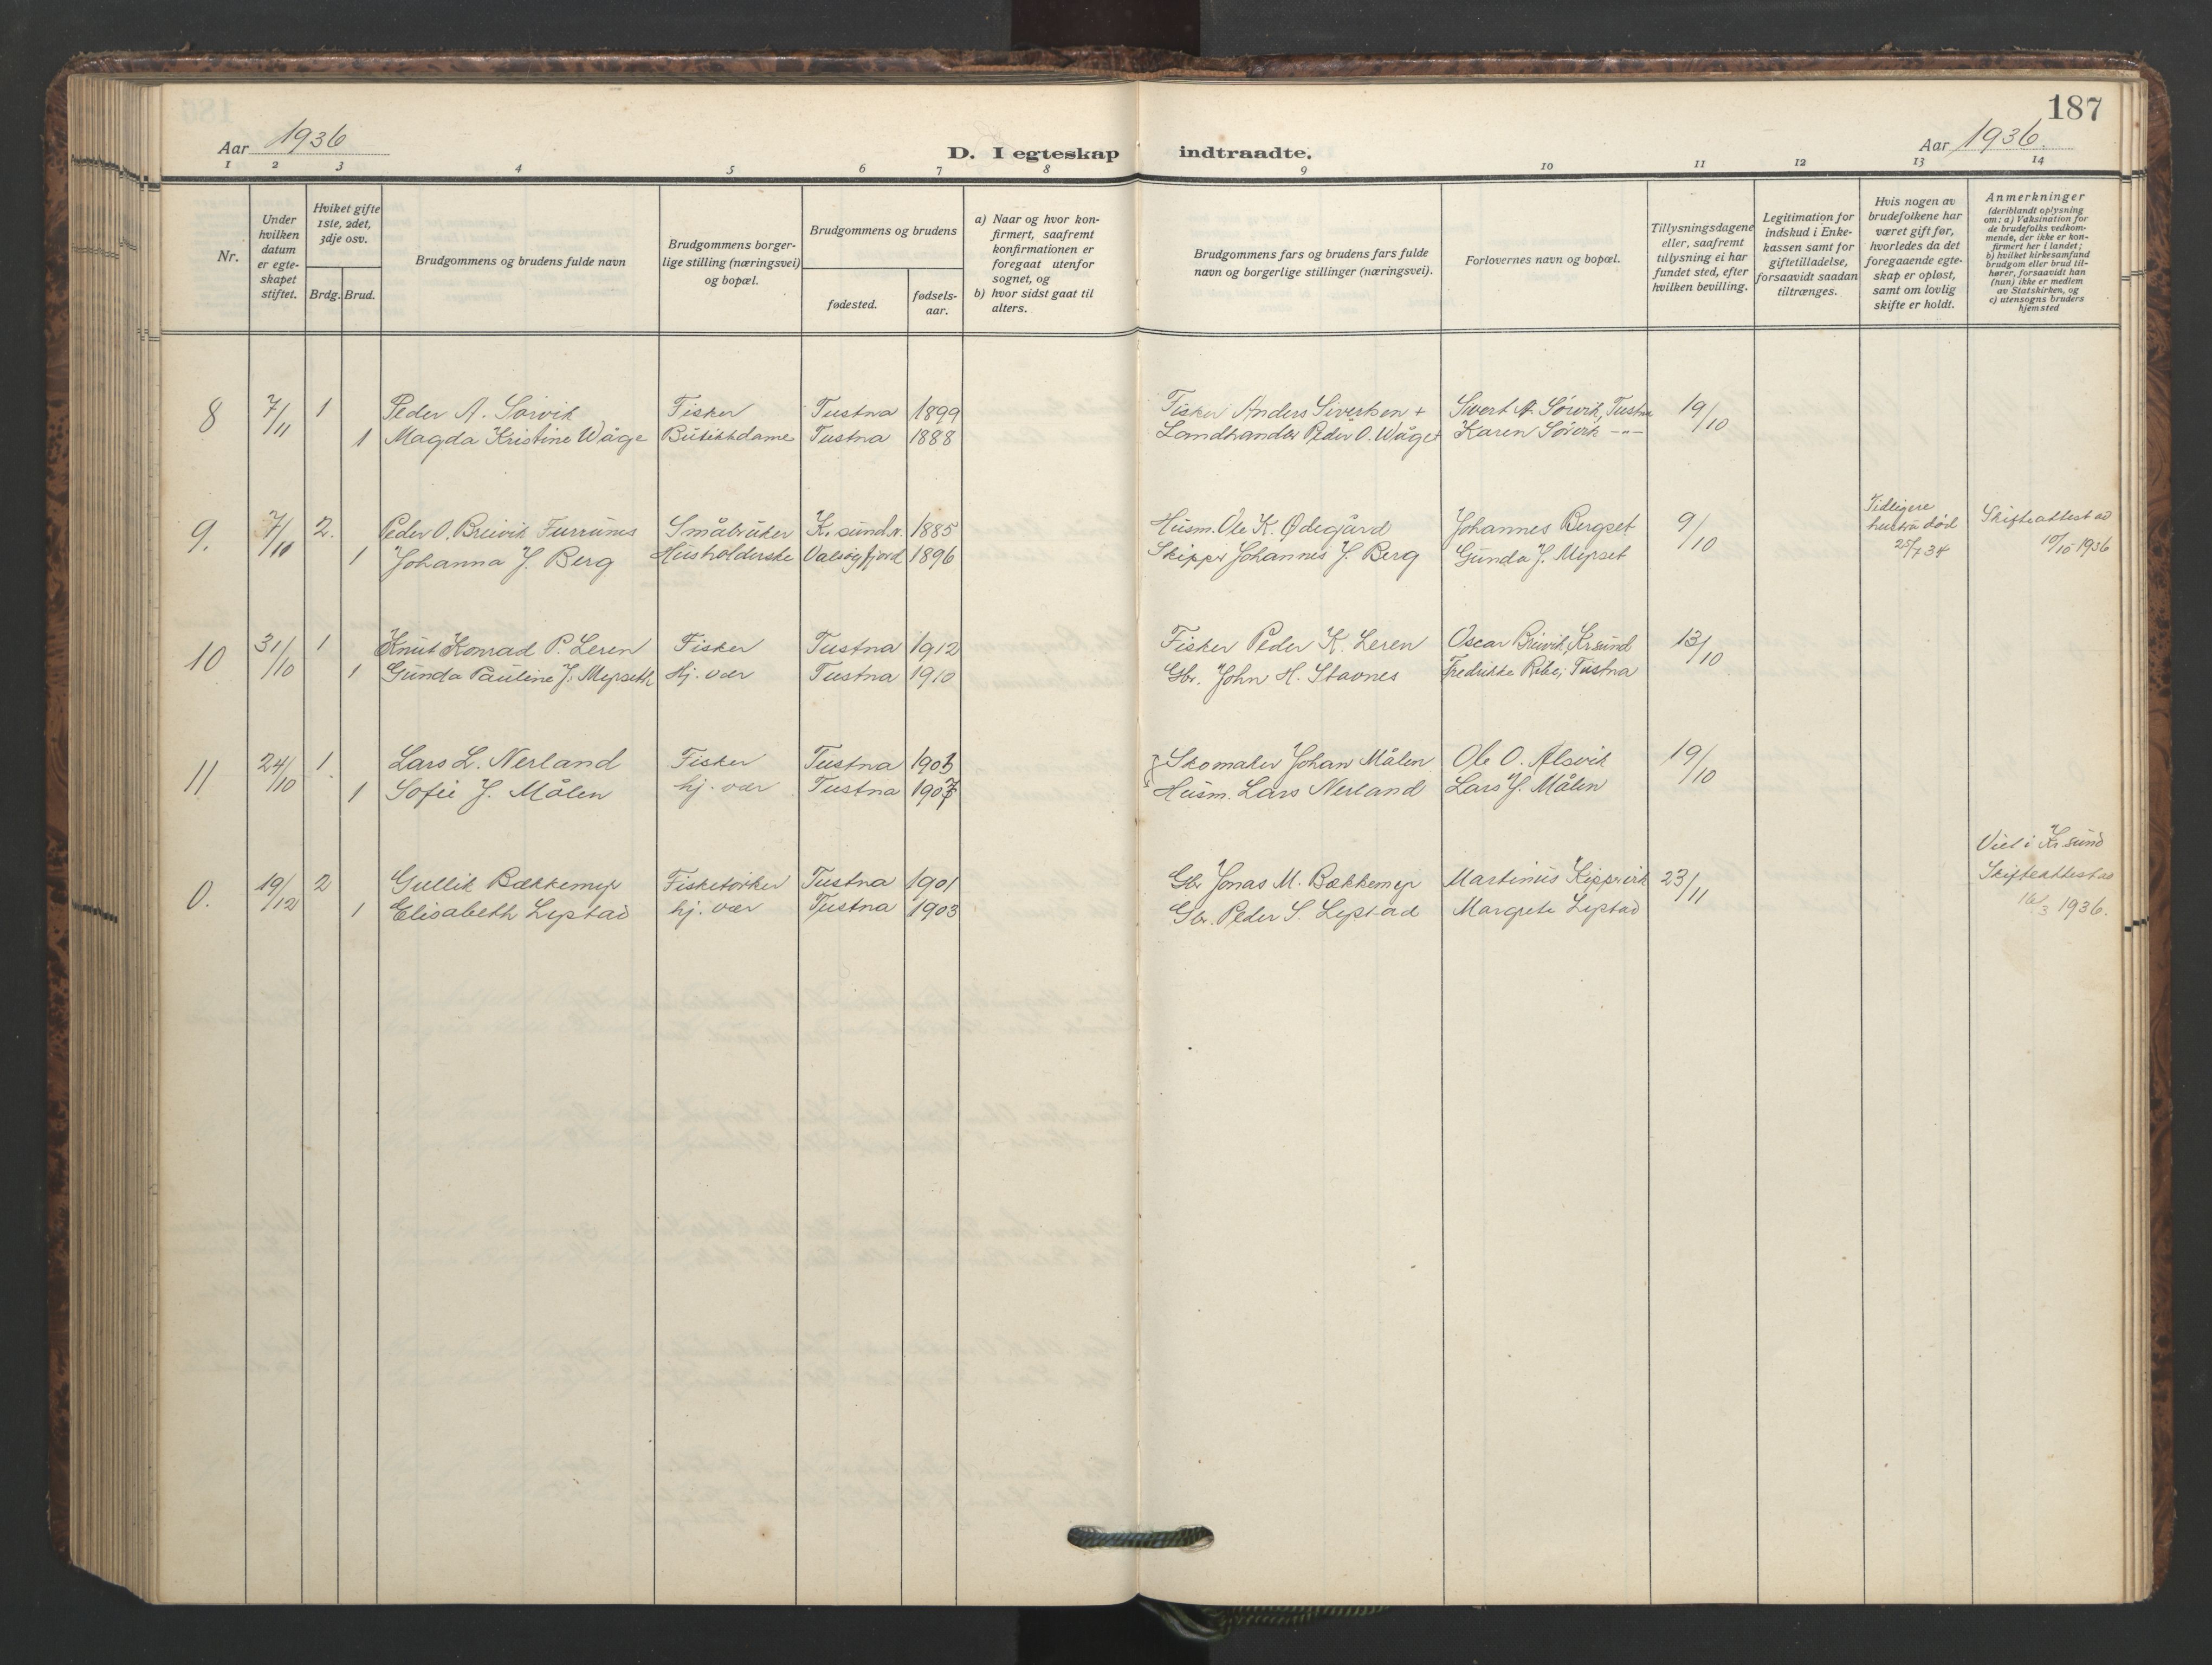 187
Aar 1936
D. I egteskap indtraadte.
Aar 1936.
1 2 3 4 5 6 7 8 9 10 11 12 13 14
Nr.
Under
hvilken
datum
er egte-
skapet
stiftet.
Hviket gifte
1ste, 2det,
3dje osv.
Brdg. Brud.
Brudgommens og brudens fulde navn
Brudgommens borger-
lige stilling (næringsvei)
og bopæl.
Brudgommens og brudens
fødested.
fødsels-
aar.
a) Naar og hvor kon-
firmert, saafremt
konfirmationen er
foregaat utenfor
sognet, og
b) hvor sidst gaat til
alters.
Brudgommens fars og brudens fars fulde
navn og borgerlige stillinger (næringsvei).
Forlovernes navn og bopæl.
Tillysningsdagene
eller, saafremt
tillysning ei har
fundet sted, efter
hvilken bevilling.
Legitimation for
indskud i Enke-
kassen samt for
giftetilladelse,
forsaavidt saadan
tiltrænges.
Hvis nogen av
brudefolkene har
været gift før,
hvorledes da det
foregaaende egte-
skap er opløst,
samt om lovlig
skifte er holdt.
Anmerkninger
(deriblandt oplysning
om: a) Vaksination for
de brudefolks vedkom-
mende, der ikke er kon-
firmert her i landet;
b) hvilket kirkesamfund
brudgom eller brud til-
hører, forsaavidt han
(hun) ikke er medlem
av Statskirken, og
c) utensogns bruders
hjemsted
8 7/11 1 Peder A. Sørvik Fisker Tustna 1899 Fisker Anders Sivertsen + Sivert A. Sørvik, Tustna 19/10
1 Magda Kristine Wåge Butikkdame Tustna 1888 Landhandler Peder O. Wåge + Karen Sørvik -"-
9. 7/10 2. Peder O. Breivik Furrunes Småbruker K.sund N. 1885 Husm. Ole K. Ødegård Johannes Bergset 9/10 Tidligere hustru død 25/7 34 Skifteattest av 10/10-1936
1 Johanna J. Berg Husholderske Valsøyfjord 1896 Skipper Johannes J. Berg Gunda J. Myrset
10 31/10 1 Knut Konrad P. Leren Fisker Tustna 1912 Fisker Peder K. Leren Oscar Breivik, Krsund 13/10
1 Gunda Pauline J. Myrseth Hj. vær Tustna 1910 Gbr. John H. Stavnes Fredrikke Ribe, Tustna
11 24/10 1 Lars L. Nerland Fisker Tustna 1903 Skomaker Johan Målen Ole O. Alsvik 19/10
1 Sofie J. Målen hj. vær Tustna 1907 Husm. Lars Nerland Lars J. Målen
0. 19/12 2 Gullik Bækkemyr Fisketørker Tustna 1901 Gbr Jonas M. Bækkemyr Martinus Kippervik 23/11 Viet i Kr.sund
1 Elisabeth Leptad hj. vær Tustna 1903 Gbr. Peder S. Leptad Margrete Leptad Skifteattest av 16/3 1936.